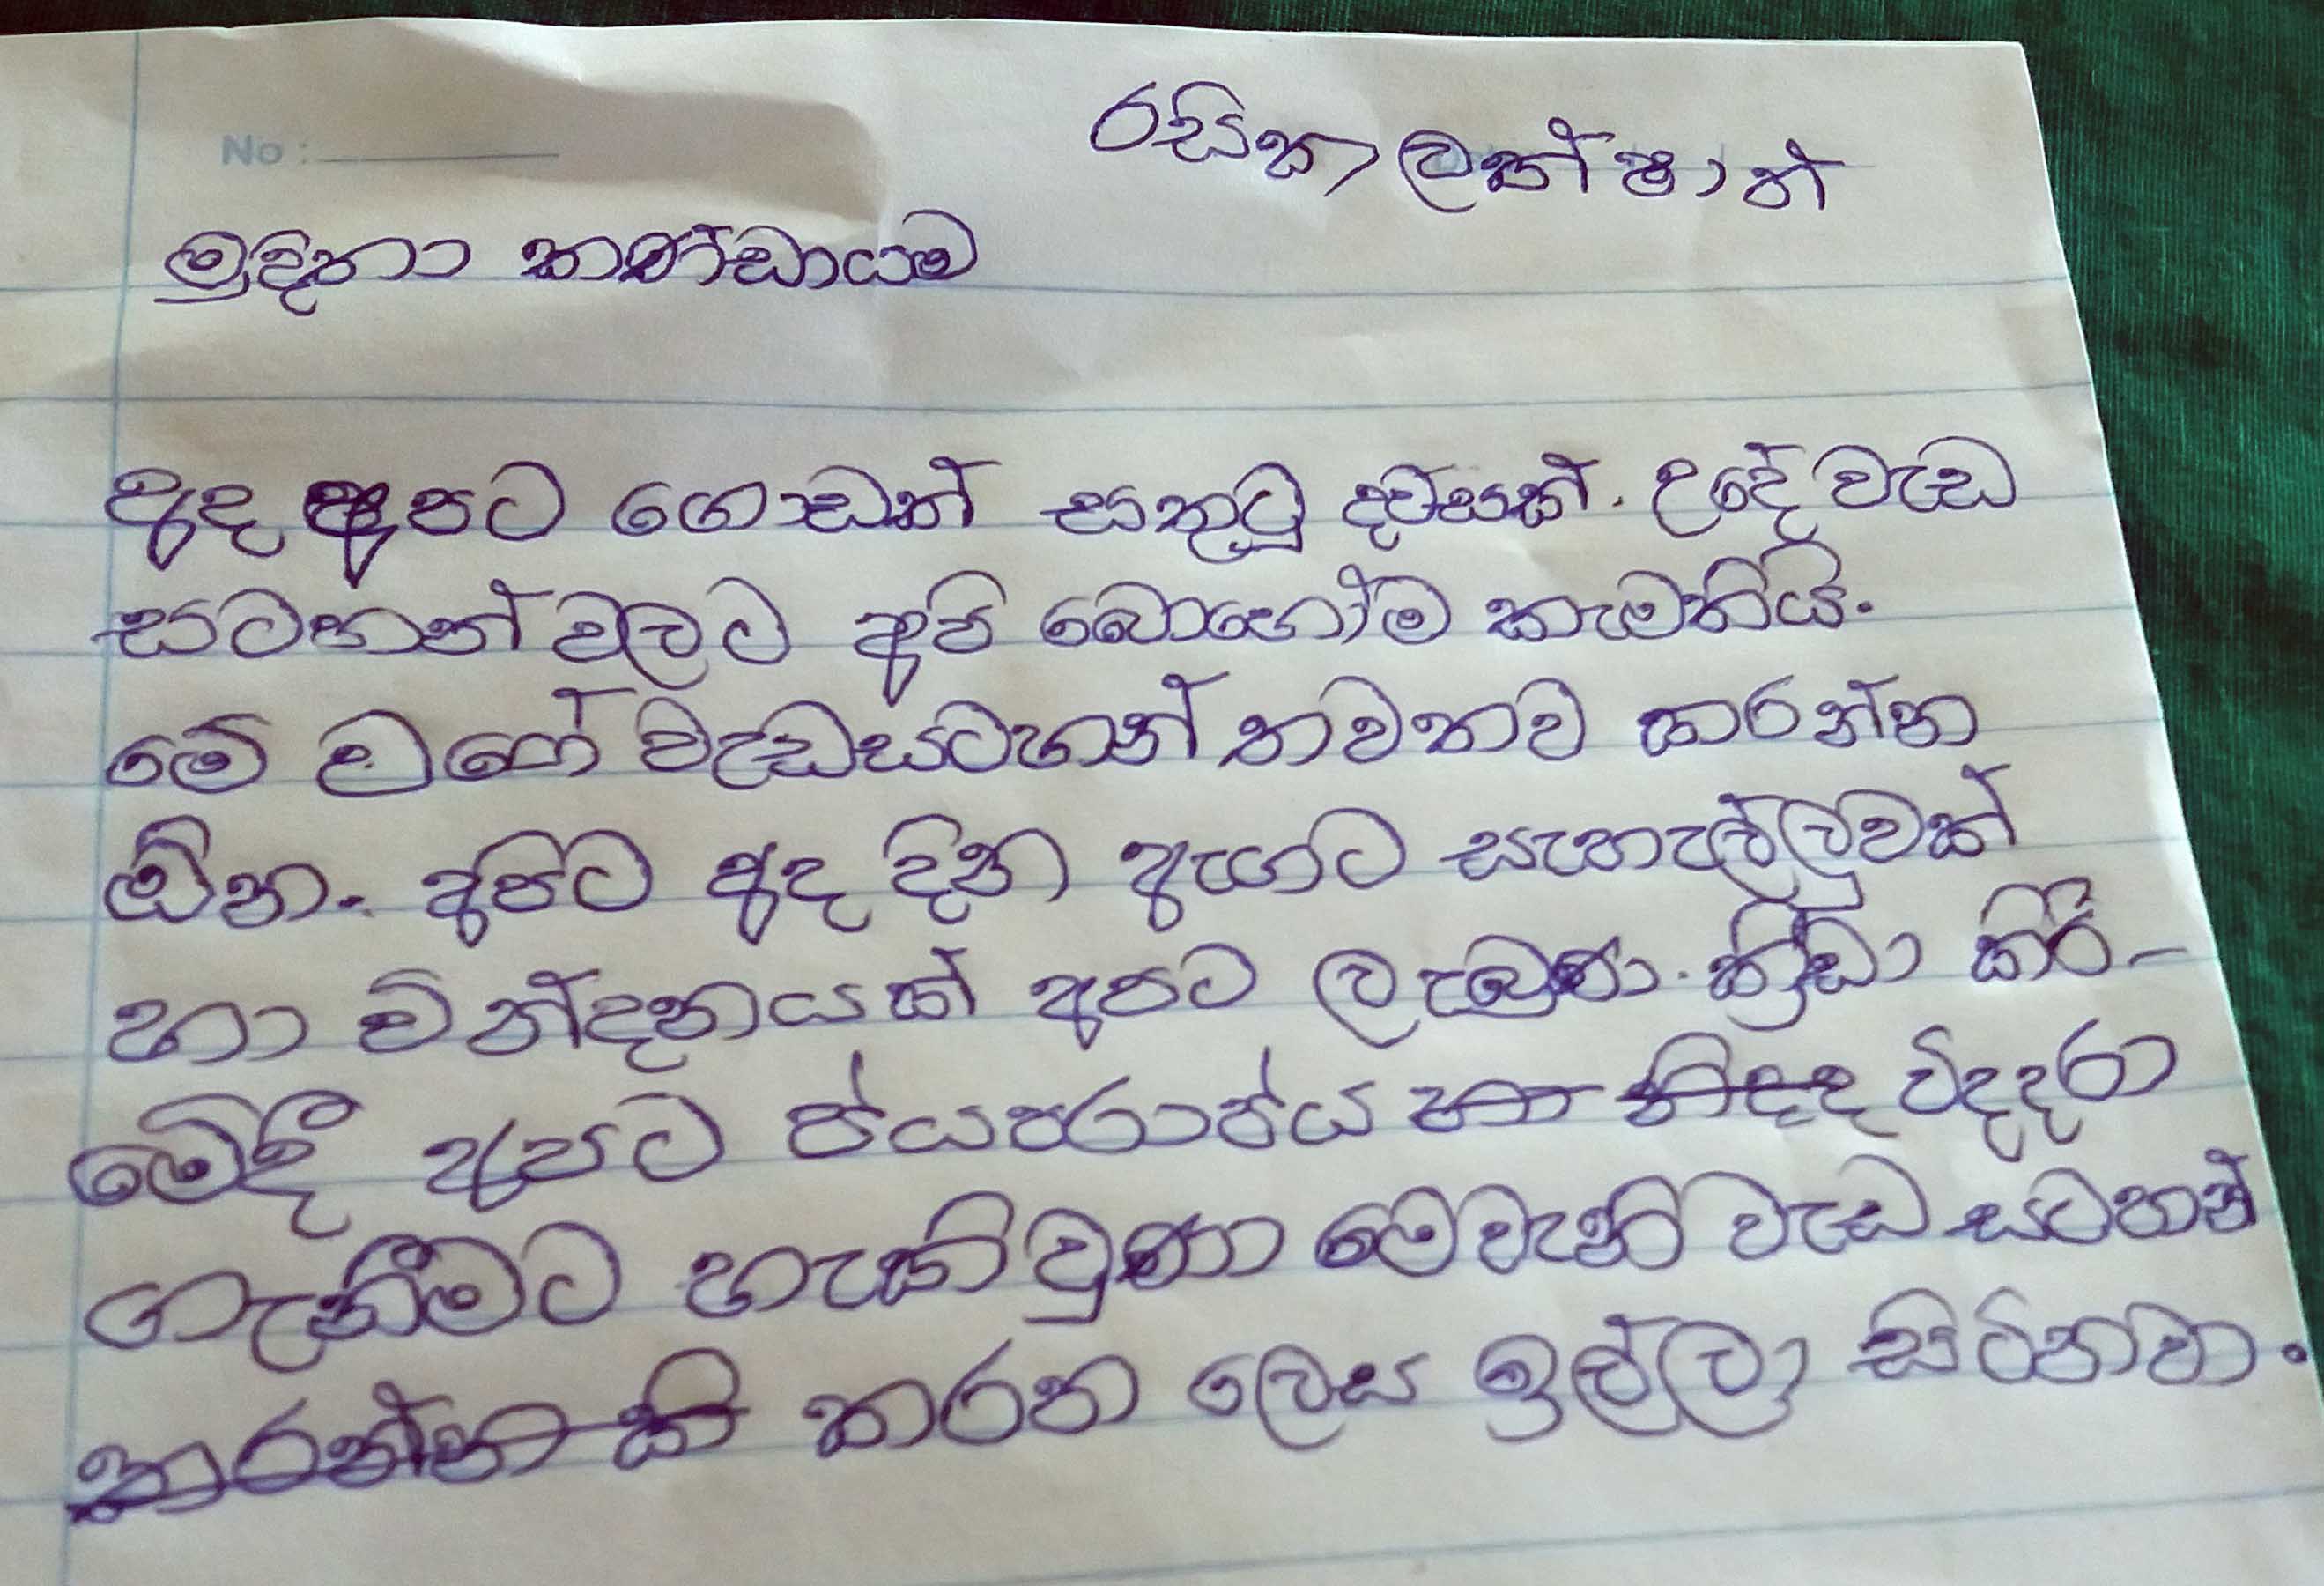 No :
රසික ලක්ෂාන්
මුදිතා කණ්ඩායම
අද අපට ගොඩක් සතුටු දවසක්. උදේ වැඩ
සටහන් වලට අපි බොහෝම කැමතියි.
මේ වගේ වැඩසටහන් තවතව කරන්න
ඕන. අපිට අද දින ඇඟට සැහැල්ලුවක්
හා වින්දනයක් අපට ලැබුණා. ක්‍රීඩා කිරි-
මේදී අපට ජයපරාජය විදදරා
ගැනීමට හැකි වුණා මෙවැනි වැඩ සටහන්
කරන ලෙස ඉල්ලා සිටිනවා.